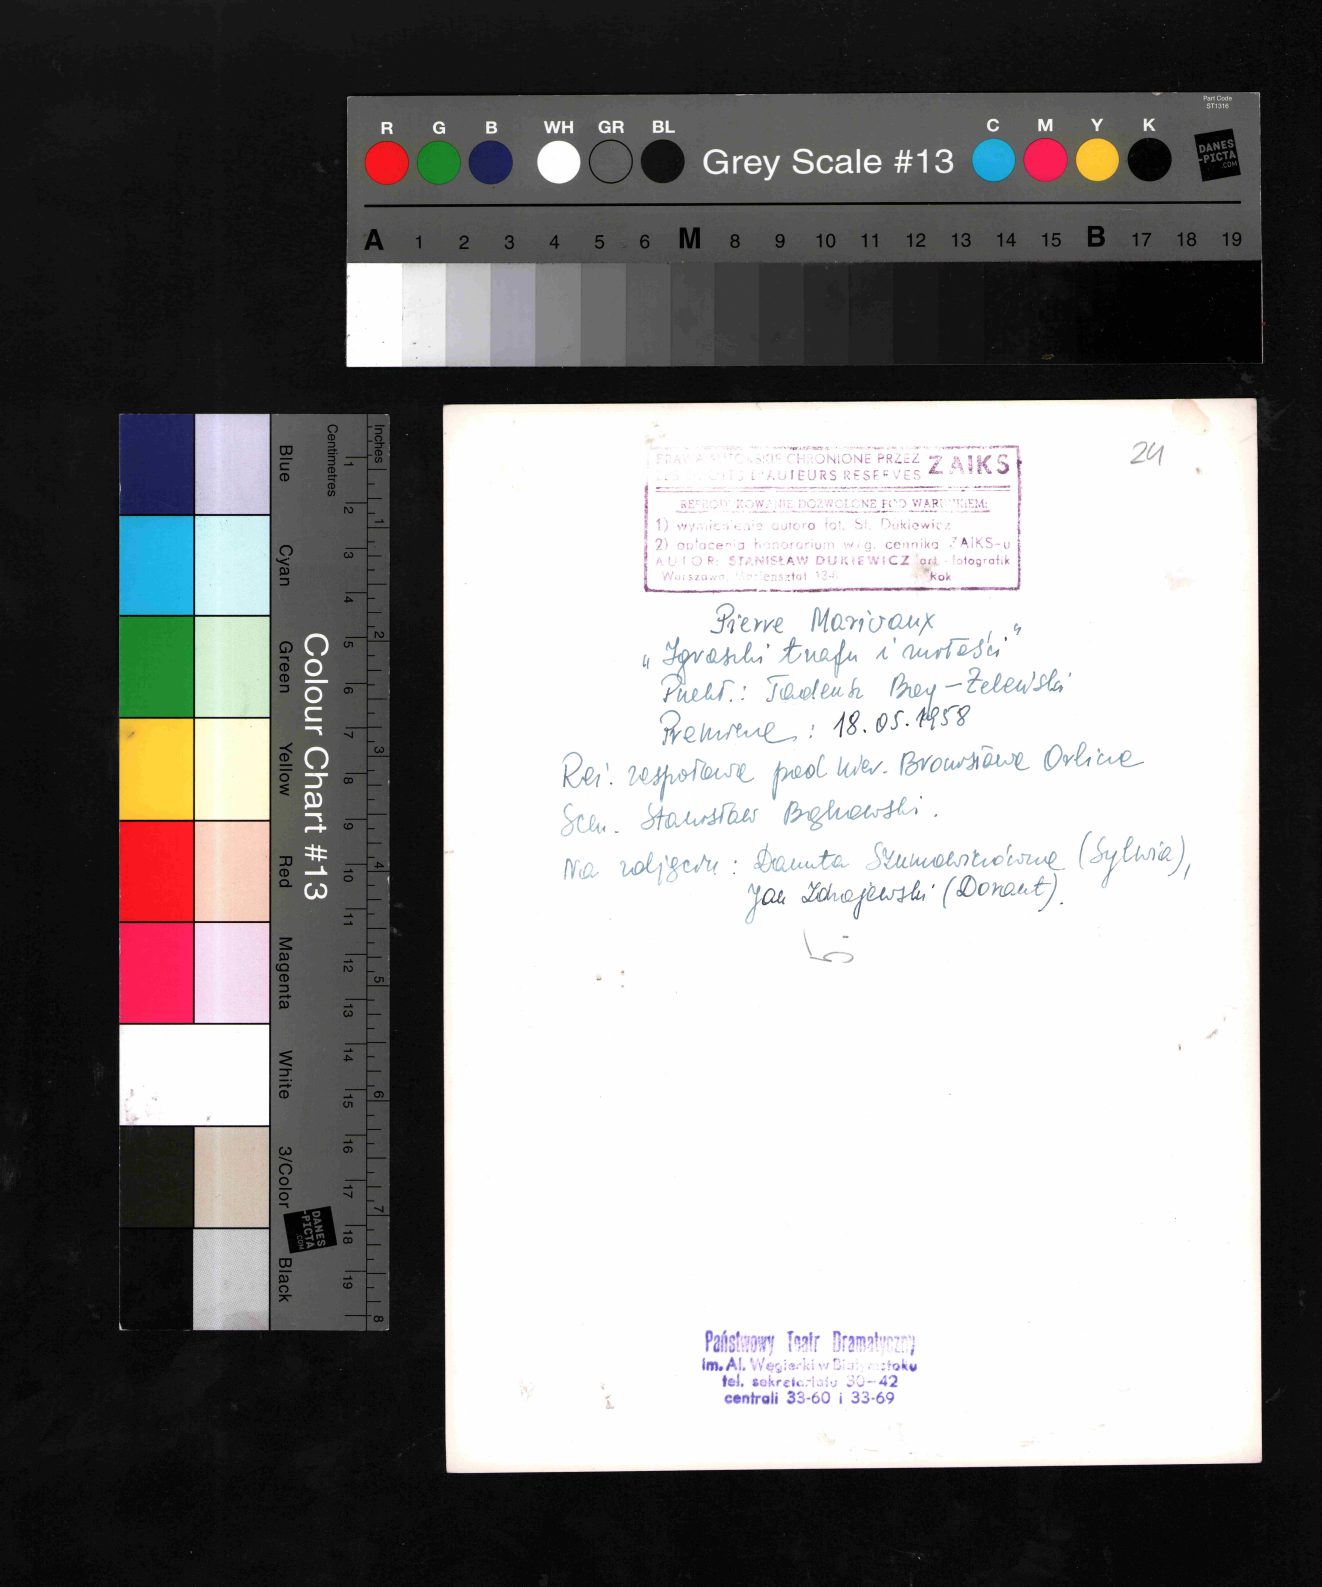 Part Code
ST1316
R G B WH GR BL Grey Scale #13 C M Y K
DANES
-PICTA
.COM
A 1 2 3 4 5 6 M 8 9 10 11 12 13 14 15 B 17 18 19
Colour Chart #13
Blue Cyan Green Yellow Red Magenta White 3/Color Black
Centimetres
1 2 3 4 5 6 7 8 9 10 11 12 13 14 15 16 17 18 19
Inches
1 2 3 4 5 6 7 8
DANES
-PICTA
.COM
24
PRAWA AUTORSKIE CHRONIONE PRZEZ ZAIKS
LES DROITS D'AUTEURS RESERVES
REPRODUKOWANIE DOZWOLONE POD WARUNKIEM:
1) wymienienie autora fot. St. Dukiewicz
2) opłacenia honorarium w/g. cennika ZAIKS-u
AUTOR: STANISŁAW DUKIEWICZ art.-fotografik
Warszawa, Mariensztat
Pierre Marivaux
„Igraszki trafu i miłości"
Przekł.: Tadeusz Boy-Żeleński
Premiera: 18.05.1958
Reż. zespołowa pod kier. Bronisława Orlicza
Scen. Stanisław Bąkowski.
Na zdjęciu: Danuta Szumowiczówna (Sylwia),
Jan Zdrojewski (Dorant).
Państwowy Teatr Dramatyczny
im. Al. Węgierki w Białymstoku
tel. sekretariatu 30-42
centrali 33-60 i 33-69